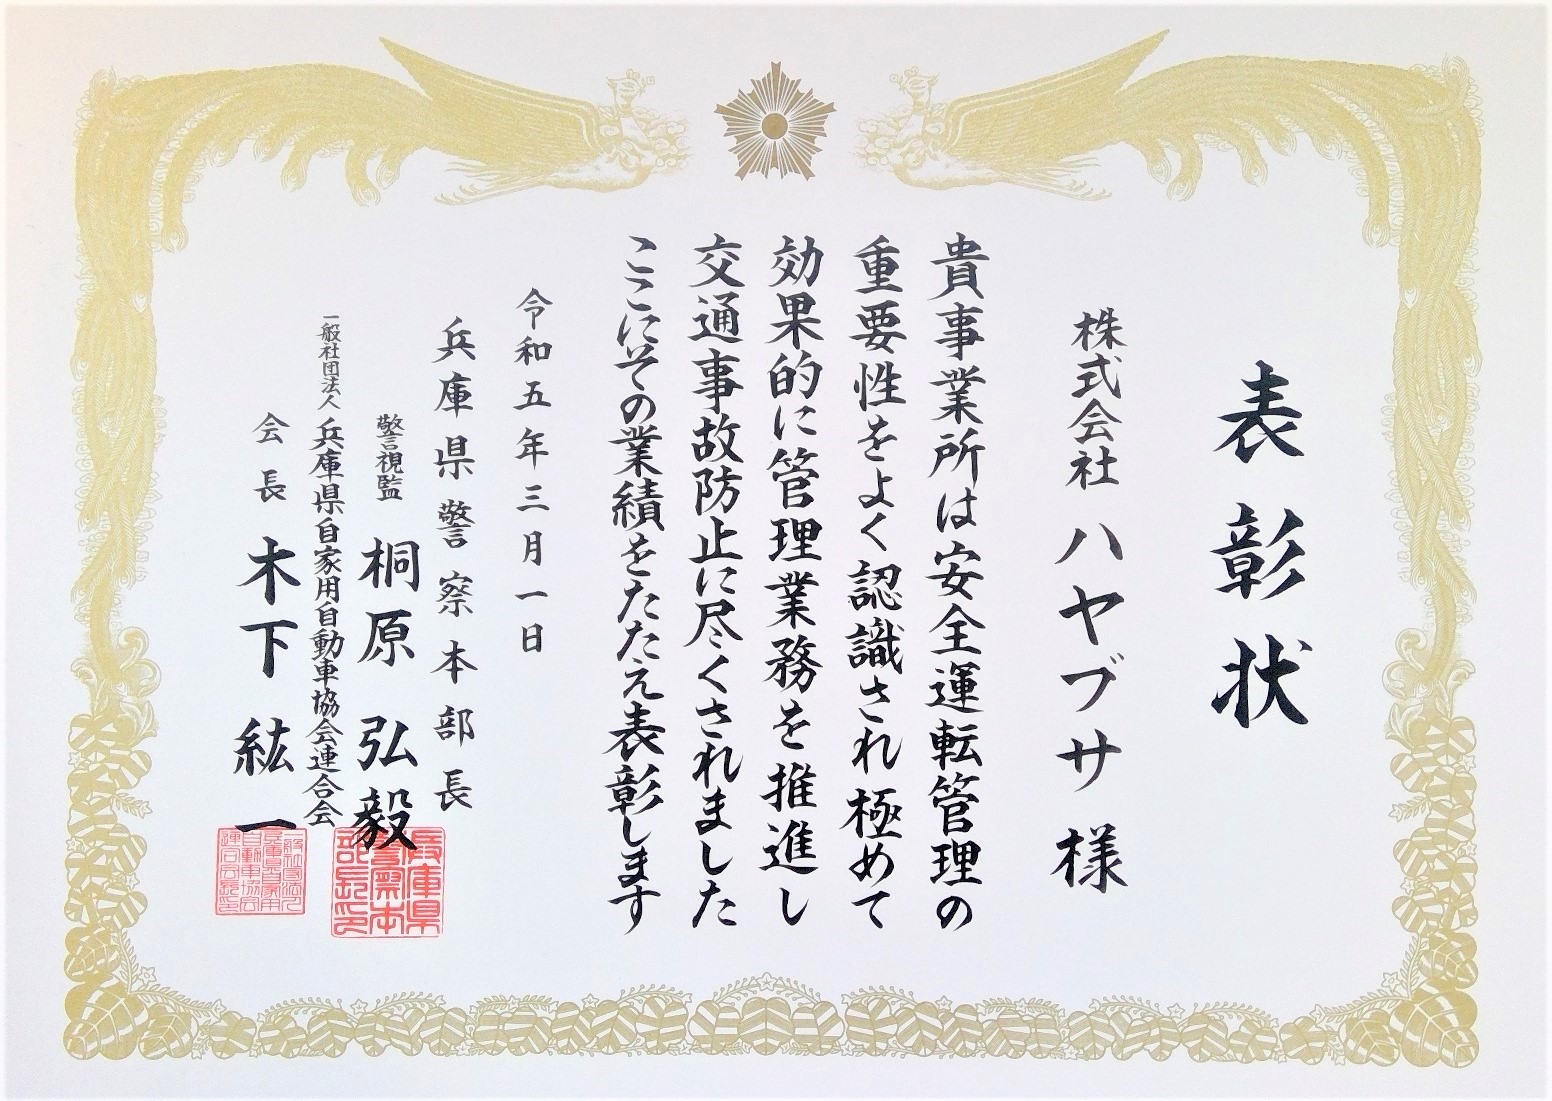 表彰状
株式会社 ハヤブサ 様
貴事業所は安全運転管理の
重要性をよく認識され極めて
効果的に管理業務を推進し
交通事故防止に尽くされました
ここにその業績をたたえ表彰します
令和五年三月一日
兵庫県警察本部長
警視監 桐原 弘毅
一般社団法人 兵庫県自家用自動車協会連合会
会長 木下 紘一
兵庫県
警察本
部長印